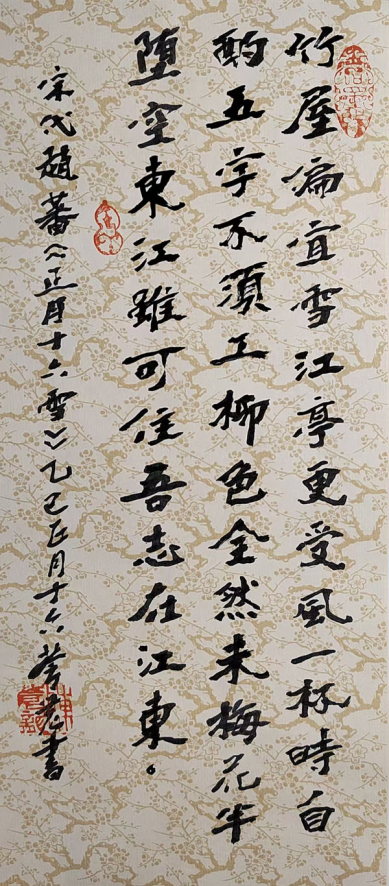 竹屋偏宜雪江亭更受風一杯時自
酌五字不須工柳色全然未梅花半
墮空東江雖可住吾志在江東。
宋代趙蕃《正月十六雪》乙巳正月十六 老書